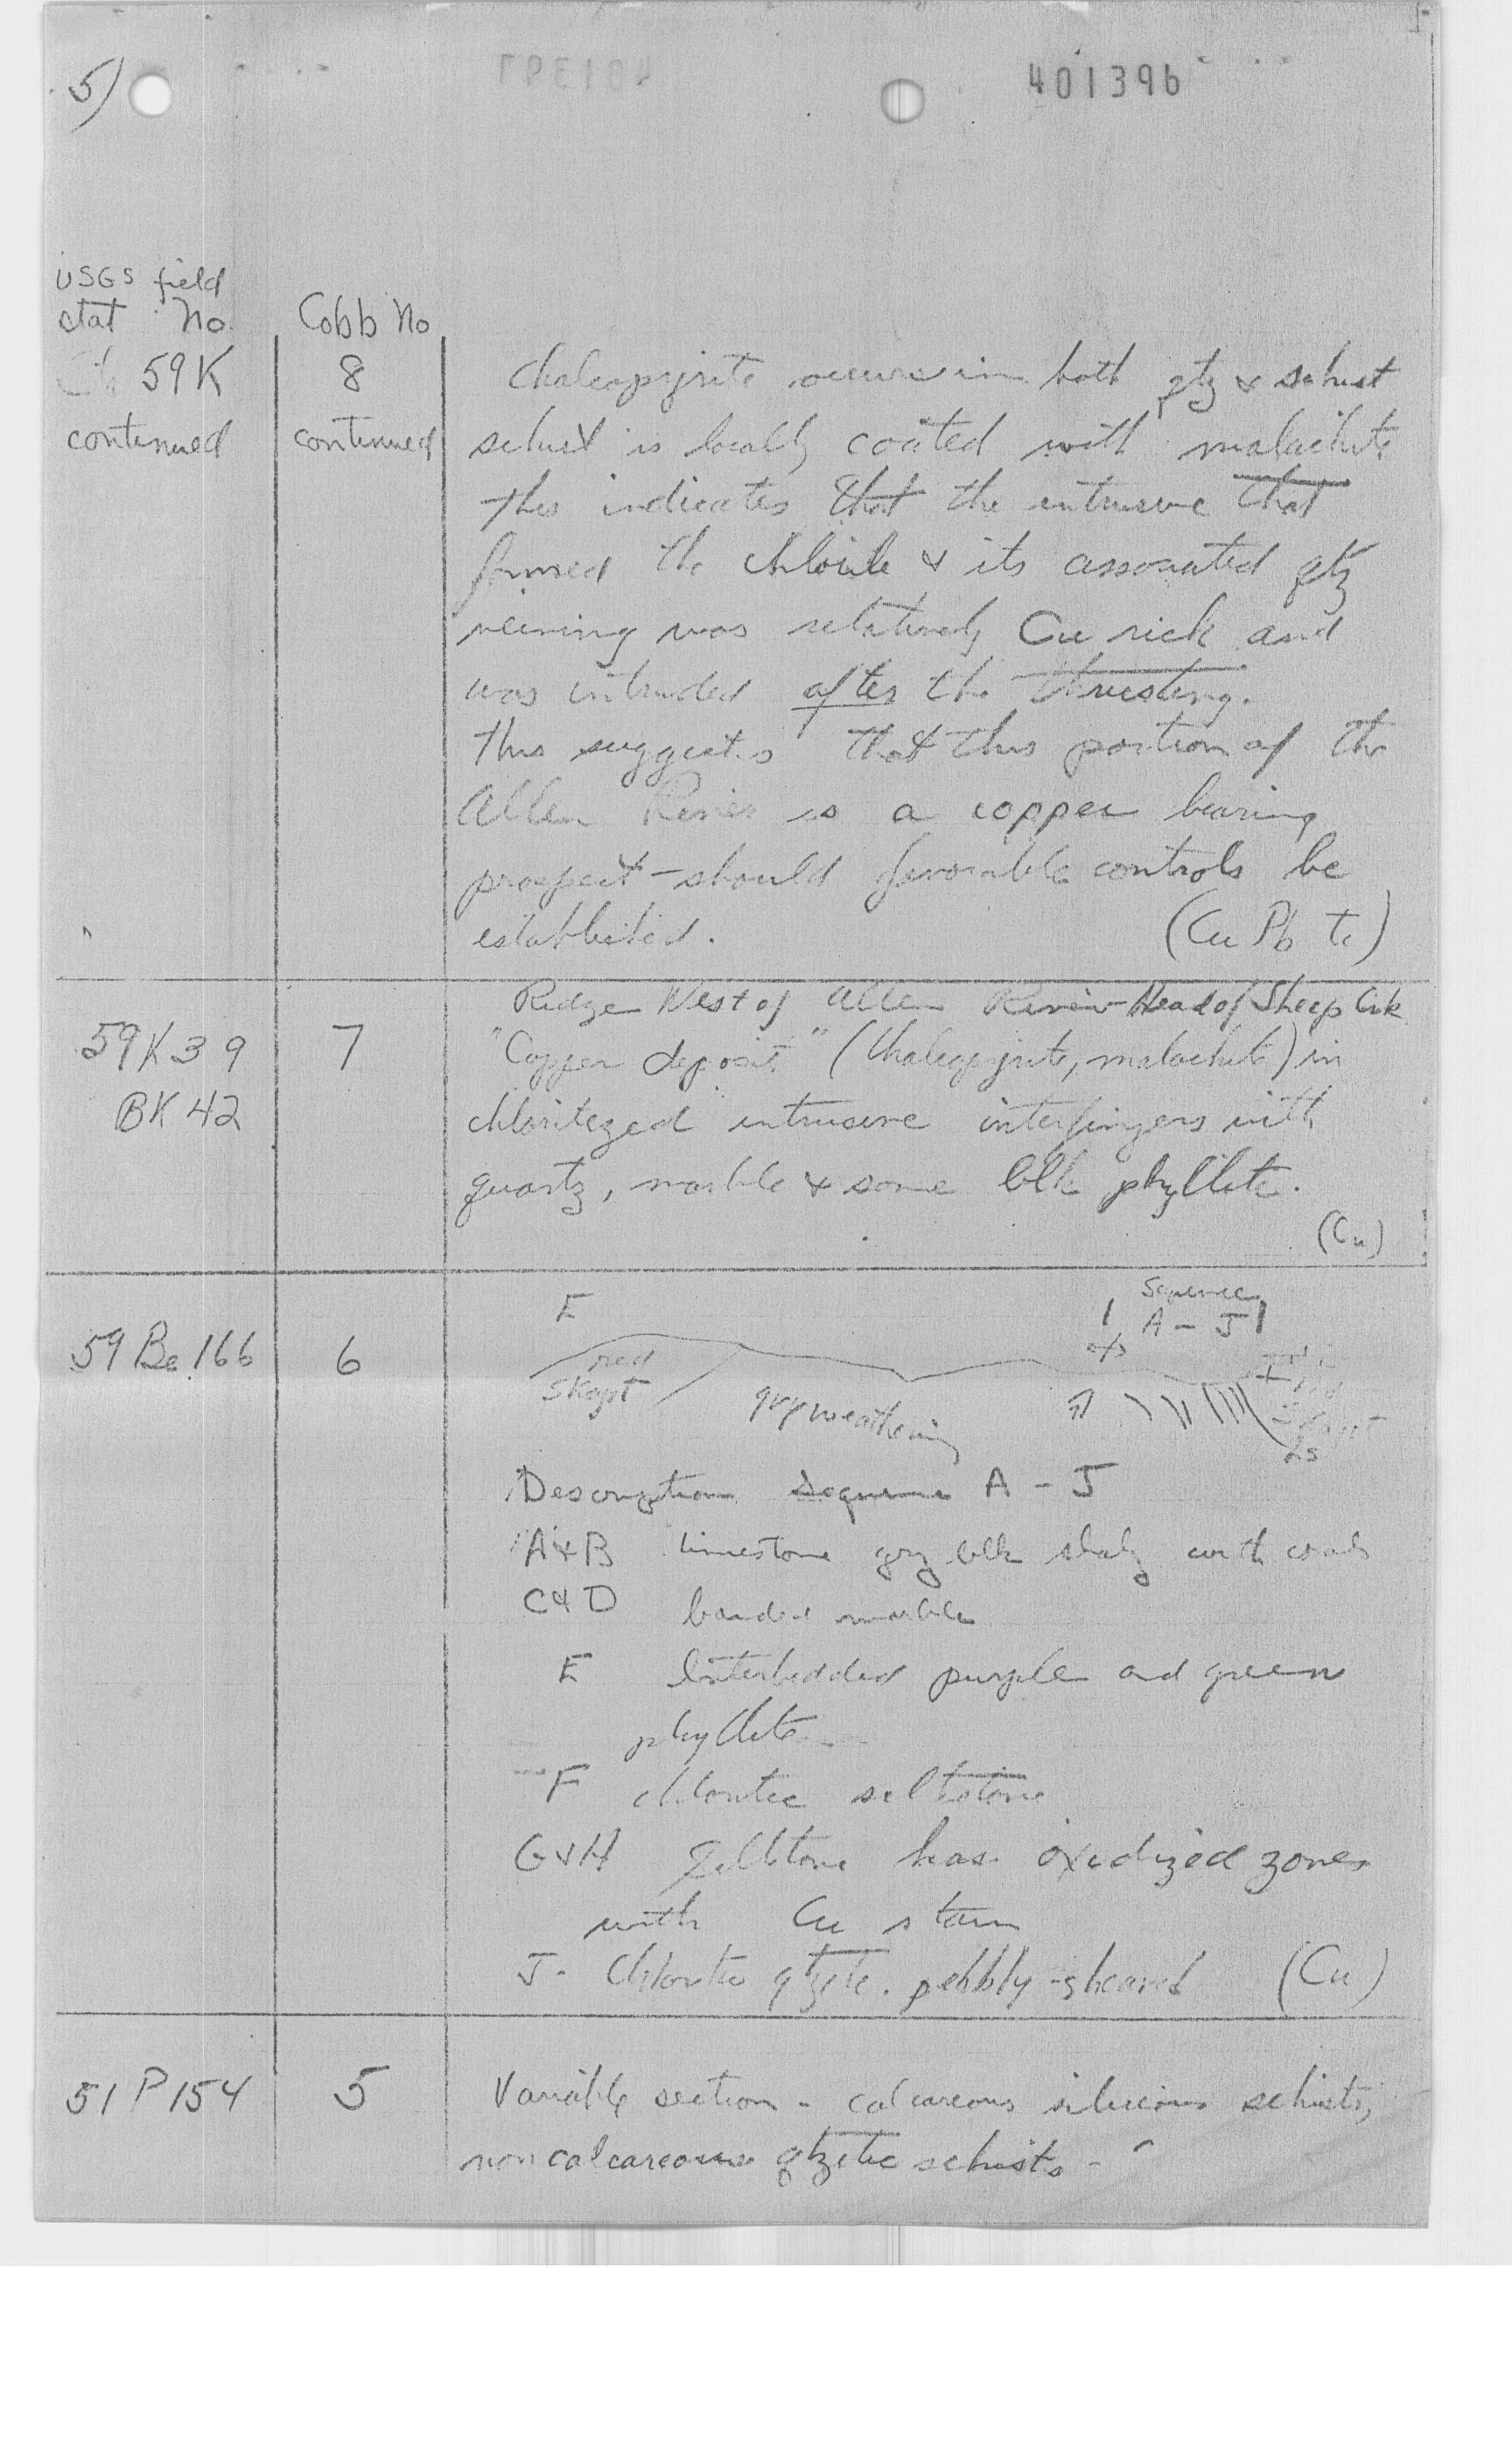 5)
401396
USGS field
stat No.
Cobb No
59K
8
continued
continued
Chalcopyrite occurs in both qtz & schist
schist is locally coated with malachite
This indicates that the intrusive that
formed the chlorite & its associated qtz
veining was relatively Cu rich and
was intruded after the thrusting.
This suggests that this portion of the
Allen River is a copper bearing
prospect - should favorable controls be
established.
(Cu Pb Te)
59K39
BK 42
7
Ridge West of Allen River - Head of Sheep Crk
"Copper deposit" (Chalcopyrite, malachite) in
chloritized intrusive interfingers with
quartz, marble & some blk phyllite.
(Cu)
59 Be 166
6
E
Sequence
A - J
red
Skajit
gry weathering
ls
Description Sequence A - J
A & B limestone gry blk shaly with corals
C & D banded marble
E Interbedded purple and green
phyllite
F chloritic siltstone
G & H Siltstone has oxidized zones
with Cu stain
J - Chloritic qtzite. pebbly - sheared (Cu)
51 P 154
5
Variable section - calcareous silicious schists,
non calcareous qtzitic schists -